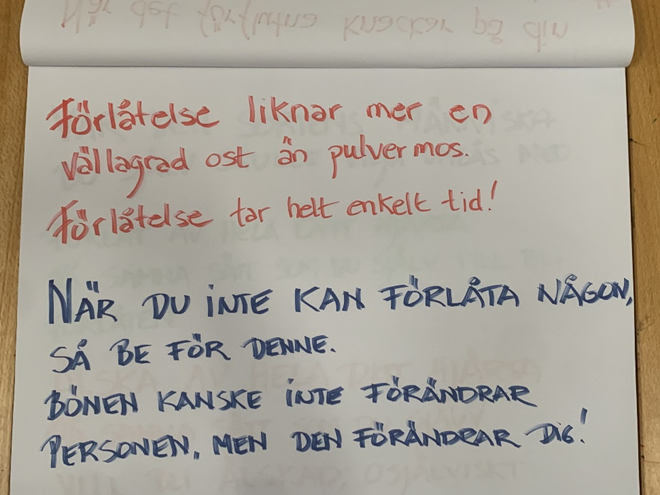 När det förflutna knackar på din
Förlåtelse liknar mer en
vällagrad ost än pulvermos.
Förlåtelse tar helt enkelt tid!
NÄR DU iNTE KAN FÖRLÅTA NÅGON,
SÅ BE FÖR DENNE.
BÖNEN KANSKE iNTE FÖRÄNDRAR
PERSONEN, MEN DEN FÖRÄNDRAR DiG!